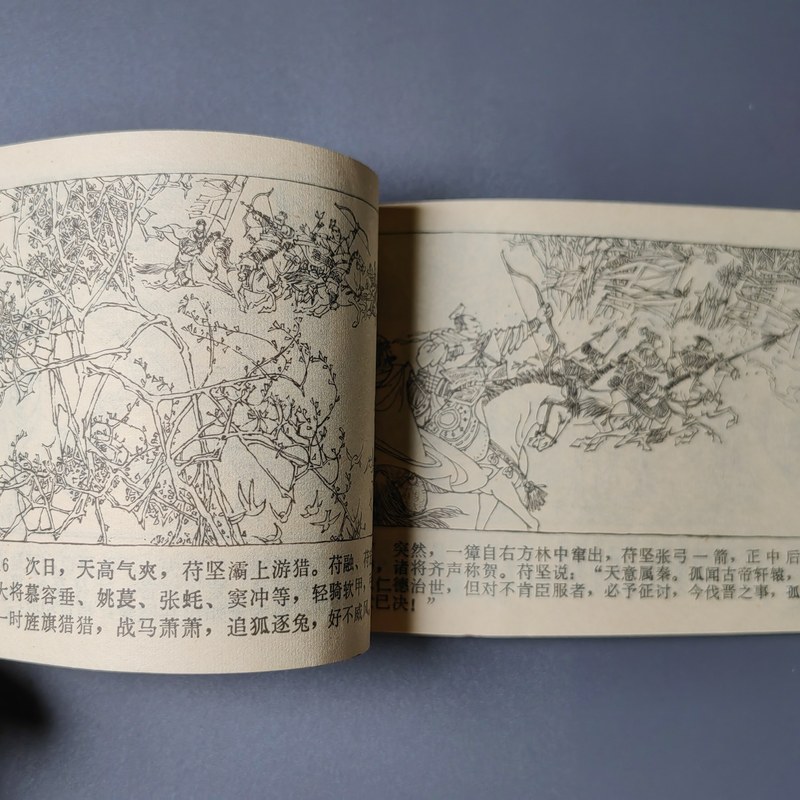 6 次日，天高气爽，苻坚灞上游猎。苻融、苻
大将慕容垂、姚苌、张蚝、窦冲等，轻骑软甲，
一时旌旗猎猎，战马萧萧，追狐逐兔，好不威风
突然，一獐自右方林中窜出，苻坚张弓一箭，正中后
，诸将齐声称贺。苻坚说：“天意属秦。孤闻古帝轩辕，
仁德治世，但对不肯臣服者，必予征讨，今伐晋之事，孤
已决！”